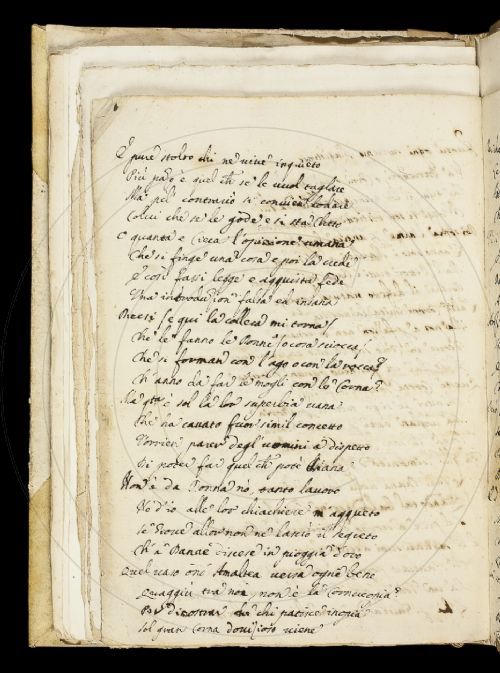 È pure stolto chi ne vive inquieto
Più pazo è quel ch se le vuol tagliare
Ma pel contrario si convien lodare
Colui che se le gode e si sta cheto
O quanto è cieca l'opinione umana
Che si finge una cosa e poi la crede
E così fassi legge e acquista fede
Una introduzion falsa ed insana
Direi se qui la collera mi torna
Che le fanno le Donne o cosa sciocca
Che si forman con l'ago o con la rocca
Ch anno da far le mogli con le Corna?
Ma qta è sol la lor superbia vana
Che ha cavato fuor simil concetto
Vorrien parer degl'uomini a dispetto
Di poter far quel ch potè Diana
Non è da Donna no, tanto lavoro
Nè d'io alle lor chiachiere m'aqqueto
se Giove allor non ne lasciò il segreto
Ch a Danae discese in pioggia d'oro
Quel vaso onde Amaltea versa ogni bene
Quaggiù tra noi, non è la Cornucopia?
Per dicostrar ch a chi patisce inopia
Sol gran Corna dovizioso viene